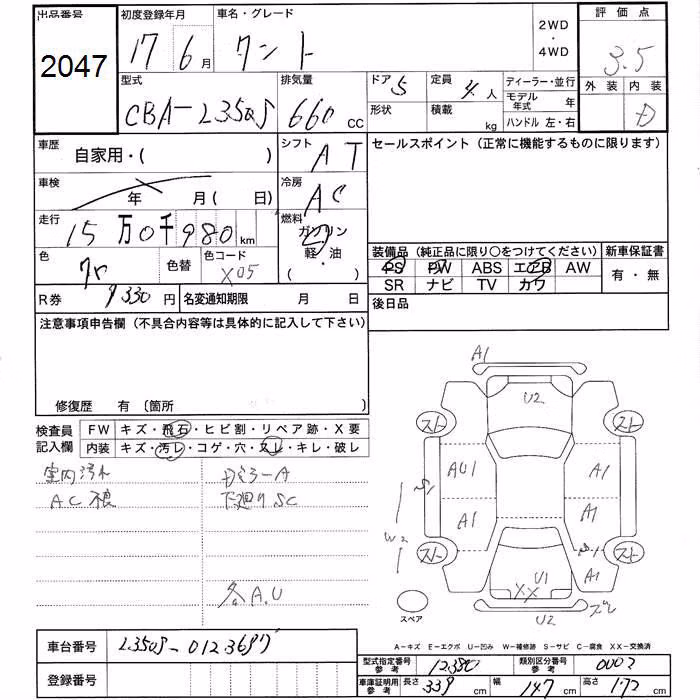 出品番号 初度登録年月 車名・グレード 2WD・4WD 評価点
2047 17 6月 タント 3.5
型式 排気量 ドア 5 定員 4人 ディーラー・並行 外装 内装
CBA-L350S 660 CC 形状 積載 kg モデル年式 年 D
ハンドル 左・右
車歴 自家用・( ) シフト AT セールスポイント(正常に機能するものに限ります)
車検 年 月(日) 冷房 AC
走行 15万0千980km 燃料 ガソリン 軽・油 ( )
色 色替 色コード X05
装備品(純正品に限り○をつけてください) 新車保証書
PS PW ABS エアB AW 有・無
SR ナビ TV カワ
R券 9330円 名変通知期限 月 日 後日品
注意事項申告欄(不具合内容等は具体的に記入して下さい)
修復歴 有 〔箇所 〕
検査員 FW キズ・飛石・ヒビ割・リペア跡・X要
記入欄 内装 キズ・汚レ・コゲ・穴・スレ・キレ・破レ
室内汚れ DミラーA
AC不良 下廻りSC
各A.U
A1
U2
スト スト
AU1 A1
S1
A1 A1
W2
スト S1 スト
U1 A1
XX
スペア U2 スレ
A-キズ E-エクボ U-凹み W-補修跡 S-サビ C-腐食 XX-交換済
車台番号 L350S-
登録番号
型式指定番号 参考 12380 類別区分番号 参考 0002
車庫証明用 参考 長さ 339 cm 幅 147 cm 高さ 172 cm